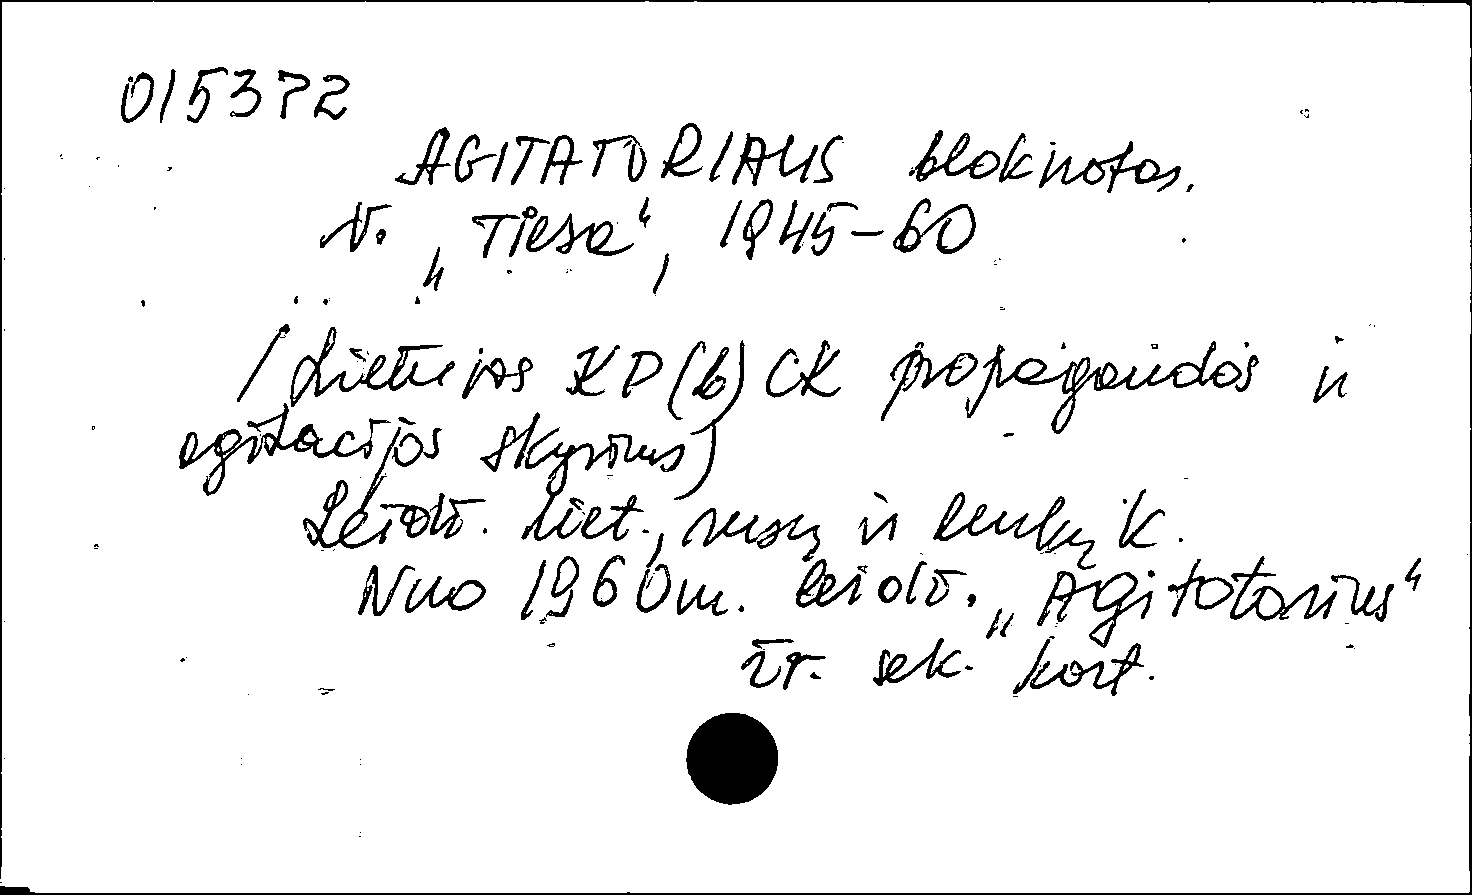 015372
AGITATORIAUS bloknotas.
V. „Tiesa“, 1945-60
/Lietuvos KP(b) CK propagandos ir
agitacijos skyrius)
Leidž. liet., rusų ir lenkų k.
Nuo 1960 m. leidž. „Agitatorius“
žr. sek. kort.